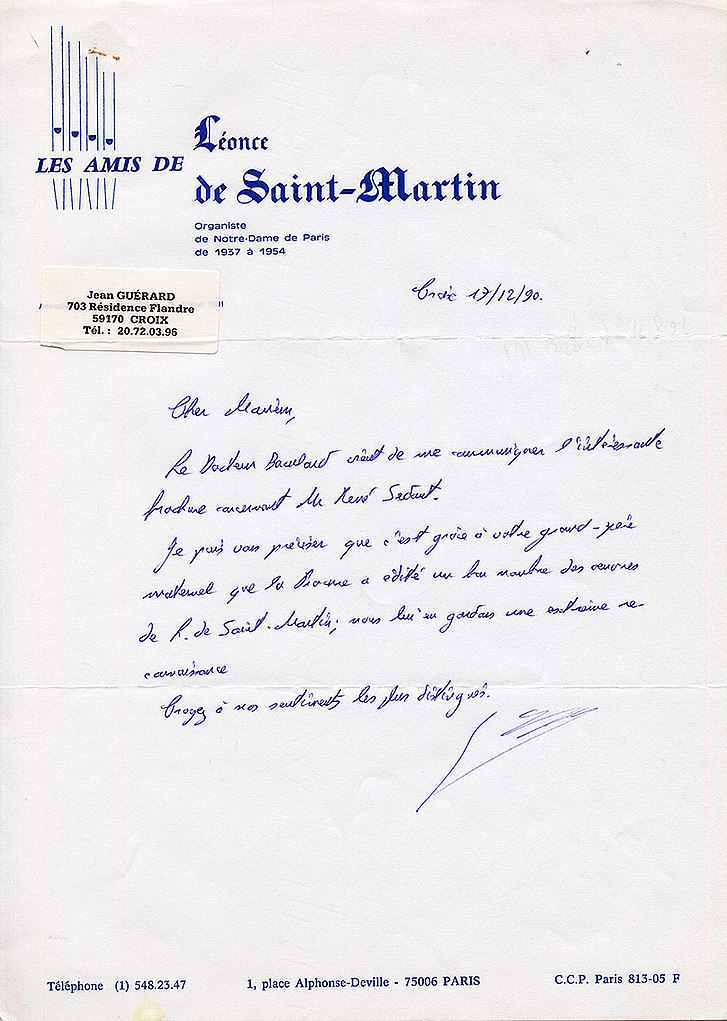 LES AMIS DE
Léonce
de Saint-Martin
Organiste
de Notre-Dame de Paris
de 1937 à 1954
Jean GUÉRARD
703 Résidence Flandre
59170 CROIX
Tél. : 20.72.03.96
Croix 17/12/90.
Cher Monsieur,
Le Docteur vient de me communiquer l'intéressante
brochure concernant Mr René
Je puis vous préciser que c'est grâce à votre grand-père
maternel que la Procure a édité un bon nombre des œuvres
de L. de Saint-Martin; nous lui en gardons une extrême re-
connaissance
Croyez à nos sentiments les plus distingués.
Téléphone (1) 548.23.47
1, place Alphonse-Deville - 75006 PARIS
C.C.P. Paris 813-05 F